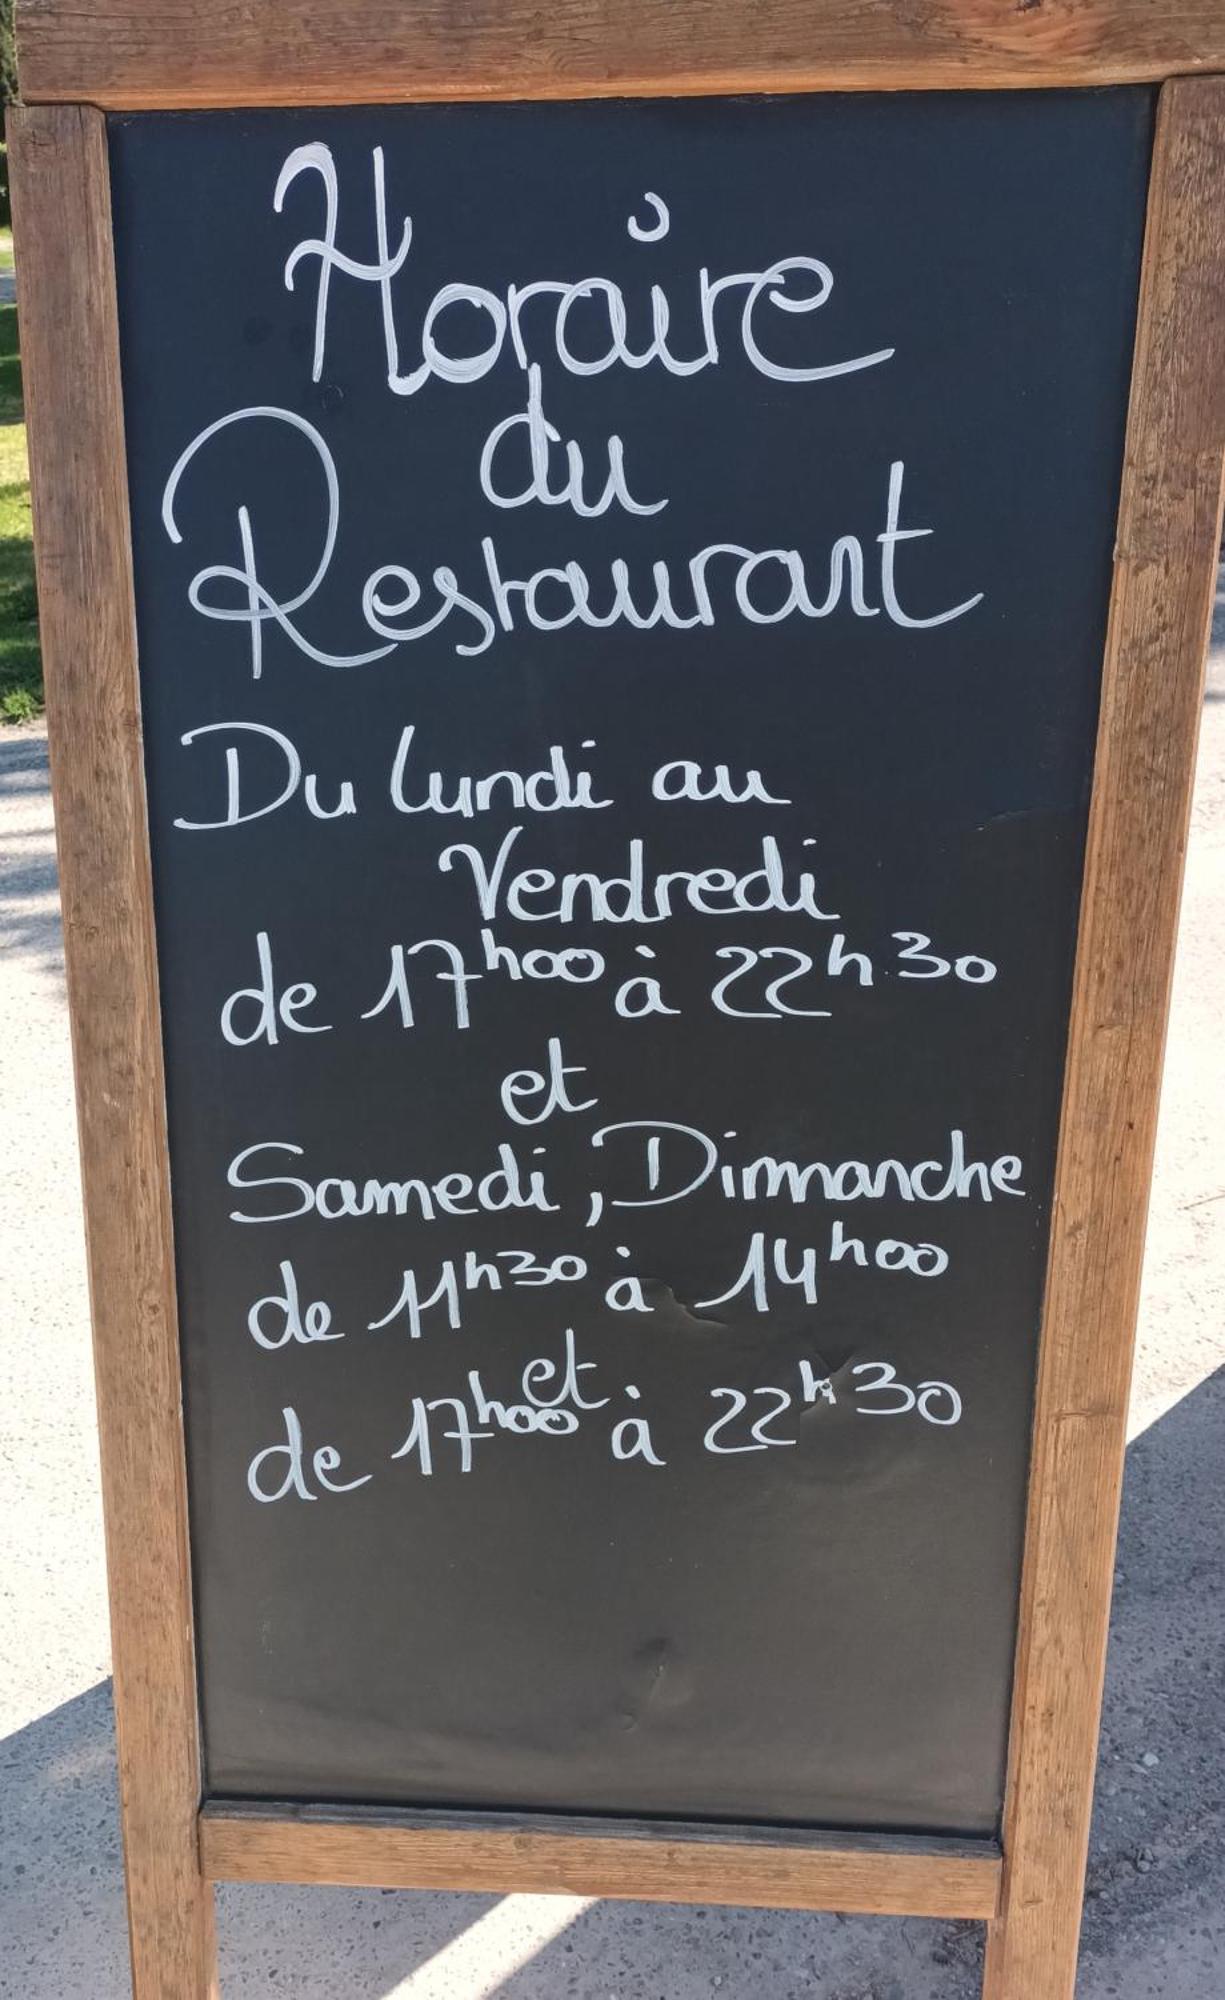 Horaire
du
Restaurant
Du lundi au
Vendredi
de 17h00 à 22h30
et
Samedi, Dimanche
de 11h30 à 14h00
et
de 17h00 à 22h30